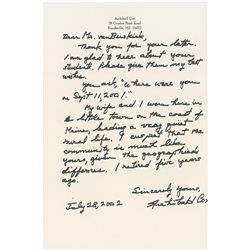 Archibald Cox
Brooksville, ME 04617
Dear Mr. van Buskirk,
Thank you for your letter.
I am glad to hear about your
students. Please give them my best
wishes.
You ask, "Where were you
on Sept 11, 2001."
My wife and I were here in
a little town on the coast of
Maine, leading a very quiet
rural life. I suspect that the
community is much like
yours, given the geographical
differences. I retired five years
ago.
Sincerely yours,
July 28, 2002
Archibald Cox